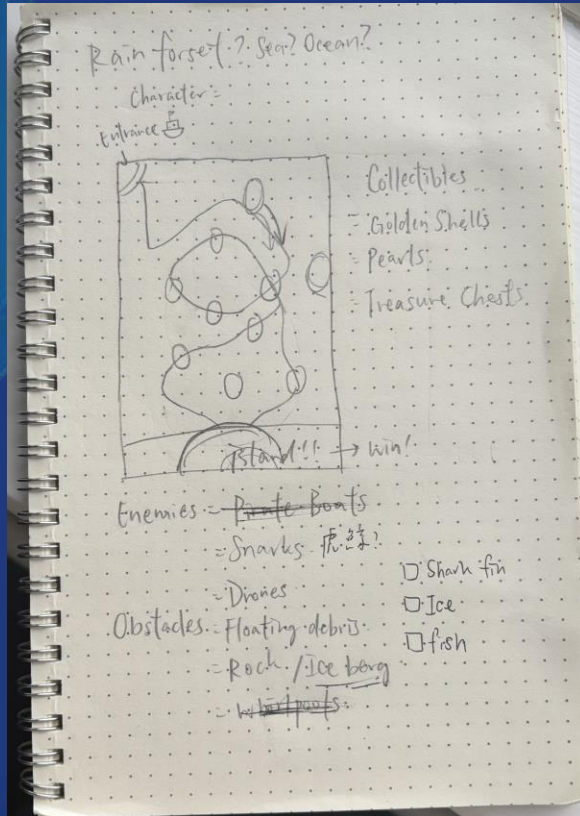 Rain forset? Sea? Ocean?
Character =
Entrance
Collectibles
- Golden Shells
- Pearls
- Treasure Chests
Island!! → Win!
Enemies = Pirate Boats
= Snarks 虎鲸?
= Drones
Obstacles = Floating debris
- Rock / Ice berg
- Whirlpools
□ Shark fin
□ Ice
□ fish